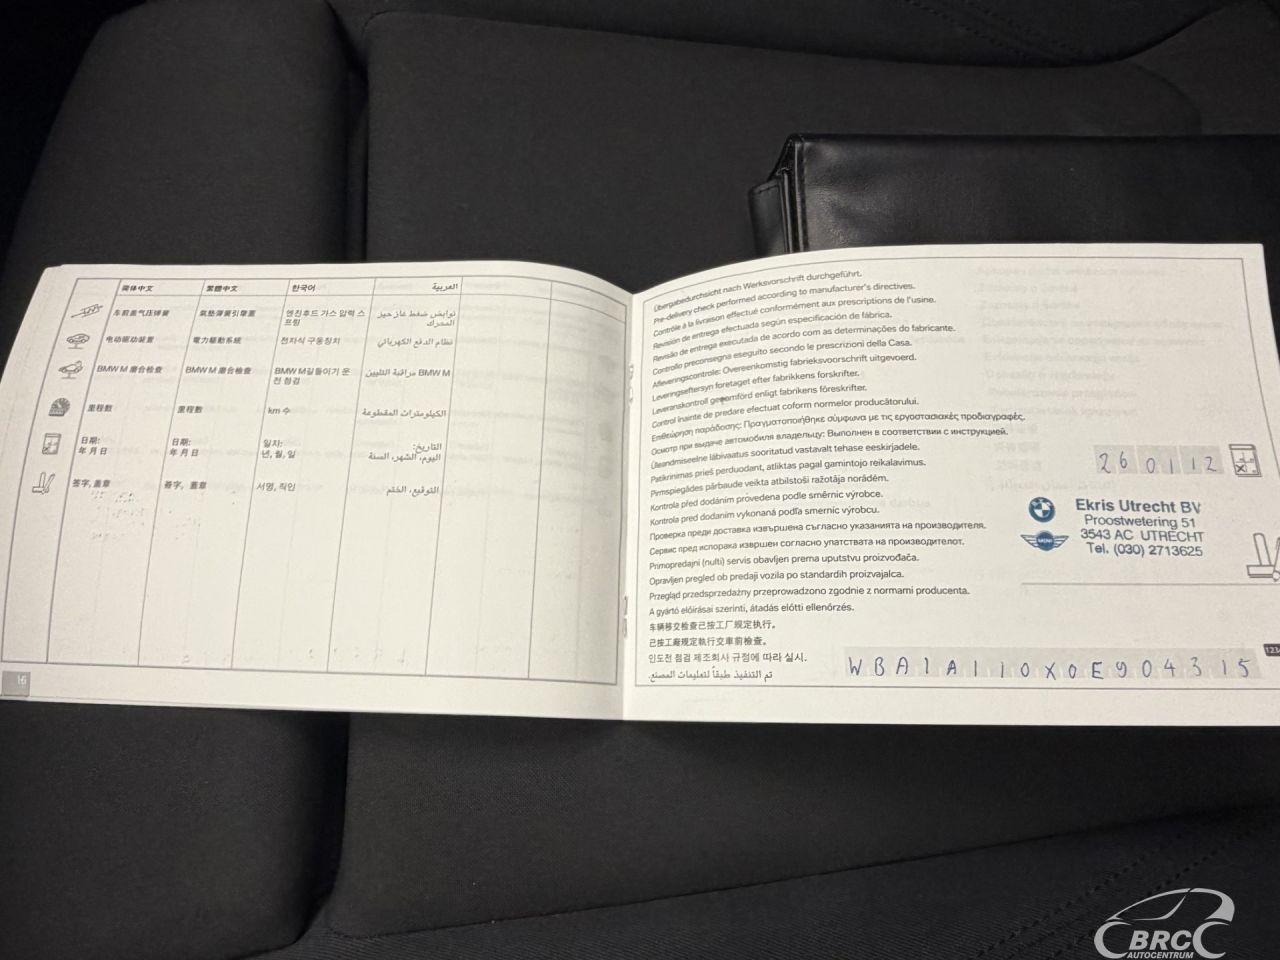 简体中文 繁體中文 한국어 العربية
车前盖气压弹簧 氣墊彈簧引擎蓋 엔진후드 가스 압력 스프링 نوابض ضغط غاز حيز المحرك
电动驱动装置 電力驅動系統 전자식 구동장치 نظام الدفع الكهربائي
BMW M 磨合检查 BMW M 磨合檢查 BMW M길들이기 운전 점검 BMW M مراقبة التليين
里程数 里程數 km 수 الكيلومترات المقطوعة
日期: 年 月 日 日期: 年 月 日 일자: 년, 월, 일 التاريخ: اليوم، الشهر، السنة
签字, 盖章 簽字, 蓋章 서명, 직인 التوقيع، الختم
16
Übergabedurchsicht nach Werksvorschrift durchgeführt.
Pre-delivery check performed according to manufacturer's directives.
Contrôle à la livraison effectué conformément aux prescriptions de l'usine.
Revisión de entrega efectuada según especificación de fábrica.
Revisão de entrega executada de acordo com as determinações do fabricante.
Controllo preconsegna eseguito secondo le prescrizioni della Casa.
Afleveringscontrole: Overeenkomstig fabrieksvoorschrift uitgevoerd.
Leveringseftersyn foretaget efter fabrikkens forskrifter.
Leveranskontroll genomförd enligt fabrikens föreskrifter.
Control înainte de predare efectuat coform normelor producătorului.
Επιθεώρηση παράδοσης: Πραγματοποιήθηκε σύμφωνα με τις εργοστασιακές προδιαγραφές.
Осмотр при выдаче автомобиля владельцу: Выполнен в соответствии с инструкцией.
Üleandmiseelne läbivaatus sooritatud vastavalt tehase eeskirjadele.
Patikrinimas prieš perduodant, atliktas pagal gamintojo reikalavimus.
Pirmspiegādes pārbaude veikta atbilstoši ražotāja norādēm.
Kontrola před dodáním provedena podle směrnic výrobce.
Kontrola pred dodaním vykonaná podľa smerníc výrobcu.
Проверка преди доставка извършена съгласно указанията на производителя.
Сервис пред испорака извршен согласно упатствата на производителот.
Primopredajni (nulti) servis obavljen prema uputstvu proizvođača.
Opravljen pregled ob predaji vozila po standardih proizvajalca.
Przegląd przedsprzedażny przeprowadzono zgodnie z normami producenta.
A gyártó előírásai szerinti, átadás előtti ellenőrzés.
车辆移交检查已按工厂规定执行。
已按工廠規定執行交車前檢查。
인도전 점검 제조회사 규정에 따라 실시.
تم التنفيذ طبقاً لتعليمات المصنع.
26 01 12
Ekris Utrecht BV
Proostwetering 51
3543 AC UTRECHT
Tel. (030) 2713625
MINI
WBA1A110X0E904315
BRC
AUTOCENTRUM